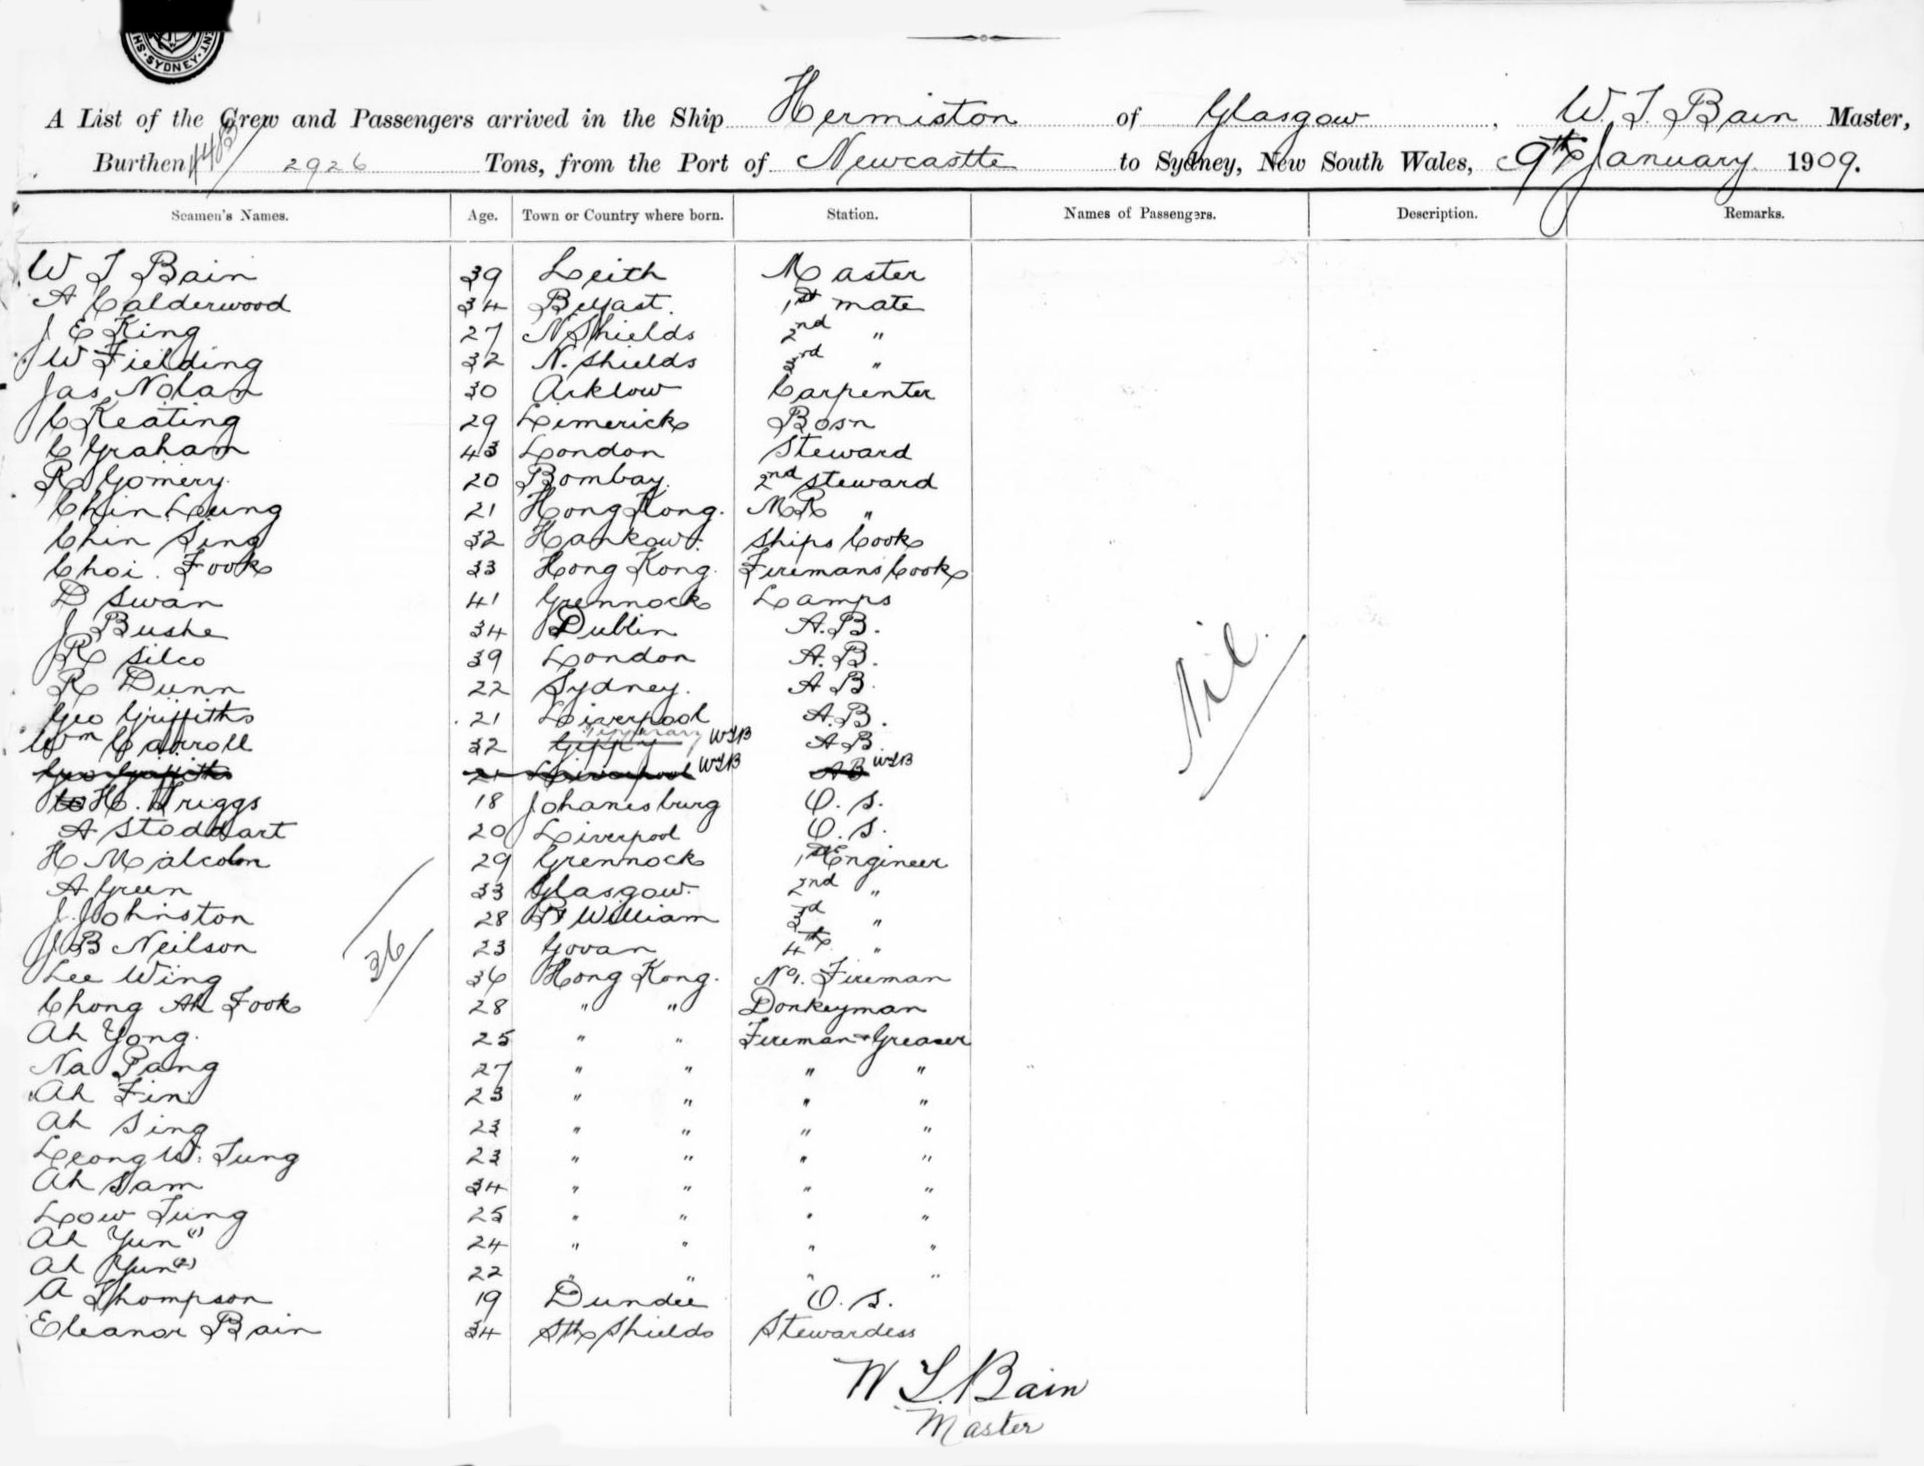 SYDNEY
A List of the Crew and Passengers arrived in the Ship Hermiston of Glasgow, W T Bain Master,
Burthen 2926 Tons, from the Port of Newcastle to Sydney, New South Wales, 9th January 1909.
Seamen's Names. Age. Town or Country where born. Station. Names of Passengers. Description. Remarks.
W T Bain 39 Leith Master
A Calderwood 34 Belfast. 1st mate
J E King 27 N Shields 2nd "
W Fielding 32 N. Shields 3rd "
Jas Nolan 30 Arklow Carpenter
C Keating 29 Limerick Bosn
C Graham 43 London Steward
R Gomery. 20 Bombay. 2nd Steward
Chin Leung 21 Hong Kong. M R "
Chin Sing 32 Hankow. Ships Cook
Choi. Fook 33 Hong Kong. Firemans Cook
D Swan 41 Grennock Lamps
J Bushe 34 Dublin A.B.
R Silco 39 London A.B.
R Dunn 22 Sydney. A B.
Geo Griffiths 21 Liverpool A.B.
Wm Carroll 32 Tipperary WTB A B
Geo Griffiths 21 Liverpool WTB A B WTB
H. Triggs 18 Johanesburg O.S.
A Stoddart 20 Liverpool O.S.
H Malcolm 29 Grennock 1st Engineer
A Green 33 Glasgow. 2nd "
J. Johnston 28 Pt William 3rd "
J B Neilson 23 Govan 4th "
Lee Wing 36 Hong Kong. No 1. Fireman
Chong Ah Fook 28 " " Donkeyman
Ah Yong. 25 " " Fireman + Greaser
Na Pang 27 " " " "
Ah Fin 23 " " " "
Ah Sing 23 " " " "
Leong W. Tung 23 " " " "
Ah Sam 34 " " " "
Low Tung 25 " " " "
Ah Yun (1) 24 " " " "
Ah Yun (2) 22 " " " "
A Thompson 19 Dundee O.S.
Eleanor Bain 34 Sth Shields Stewardess
36
Nil.
W T. Bain
Master